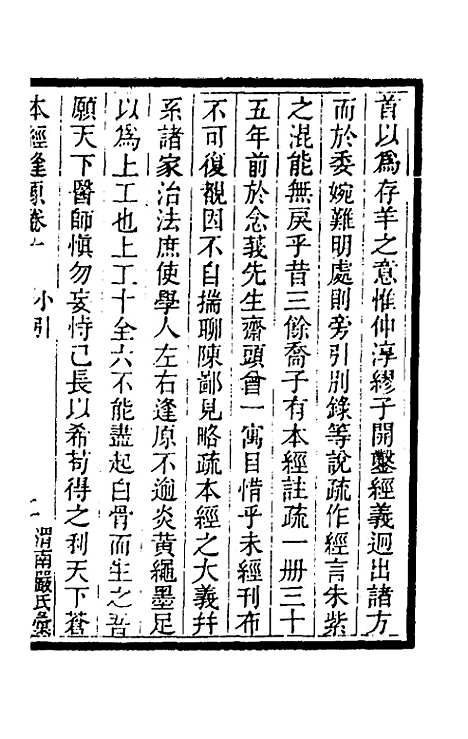 首以為存羊之意惟仲淳繆子開鑿經義迥出諸方
而於委婉難明處則旁引別錄等說疏作經言朱紫
之混能無戾乎昔三餘喬子有本經註疏一册三十
五年前於念莪先生齋頭曾一寓目惜乎未經刊布
不可復覩因不自揣聊陳鄙見略疏本經之大義幷
系諸家治法庶使學人左右逢原不逾炎黃繩墨足
以為上工也上工十全六不能盡起白骨而生之吾
願天下醫師愼勿妄恃己長以希苟得之利天下蒼
本經逢原卷
小引
渭南嚴氏彙